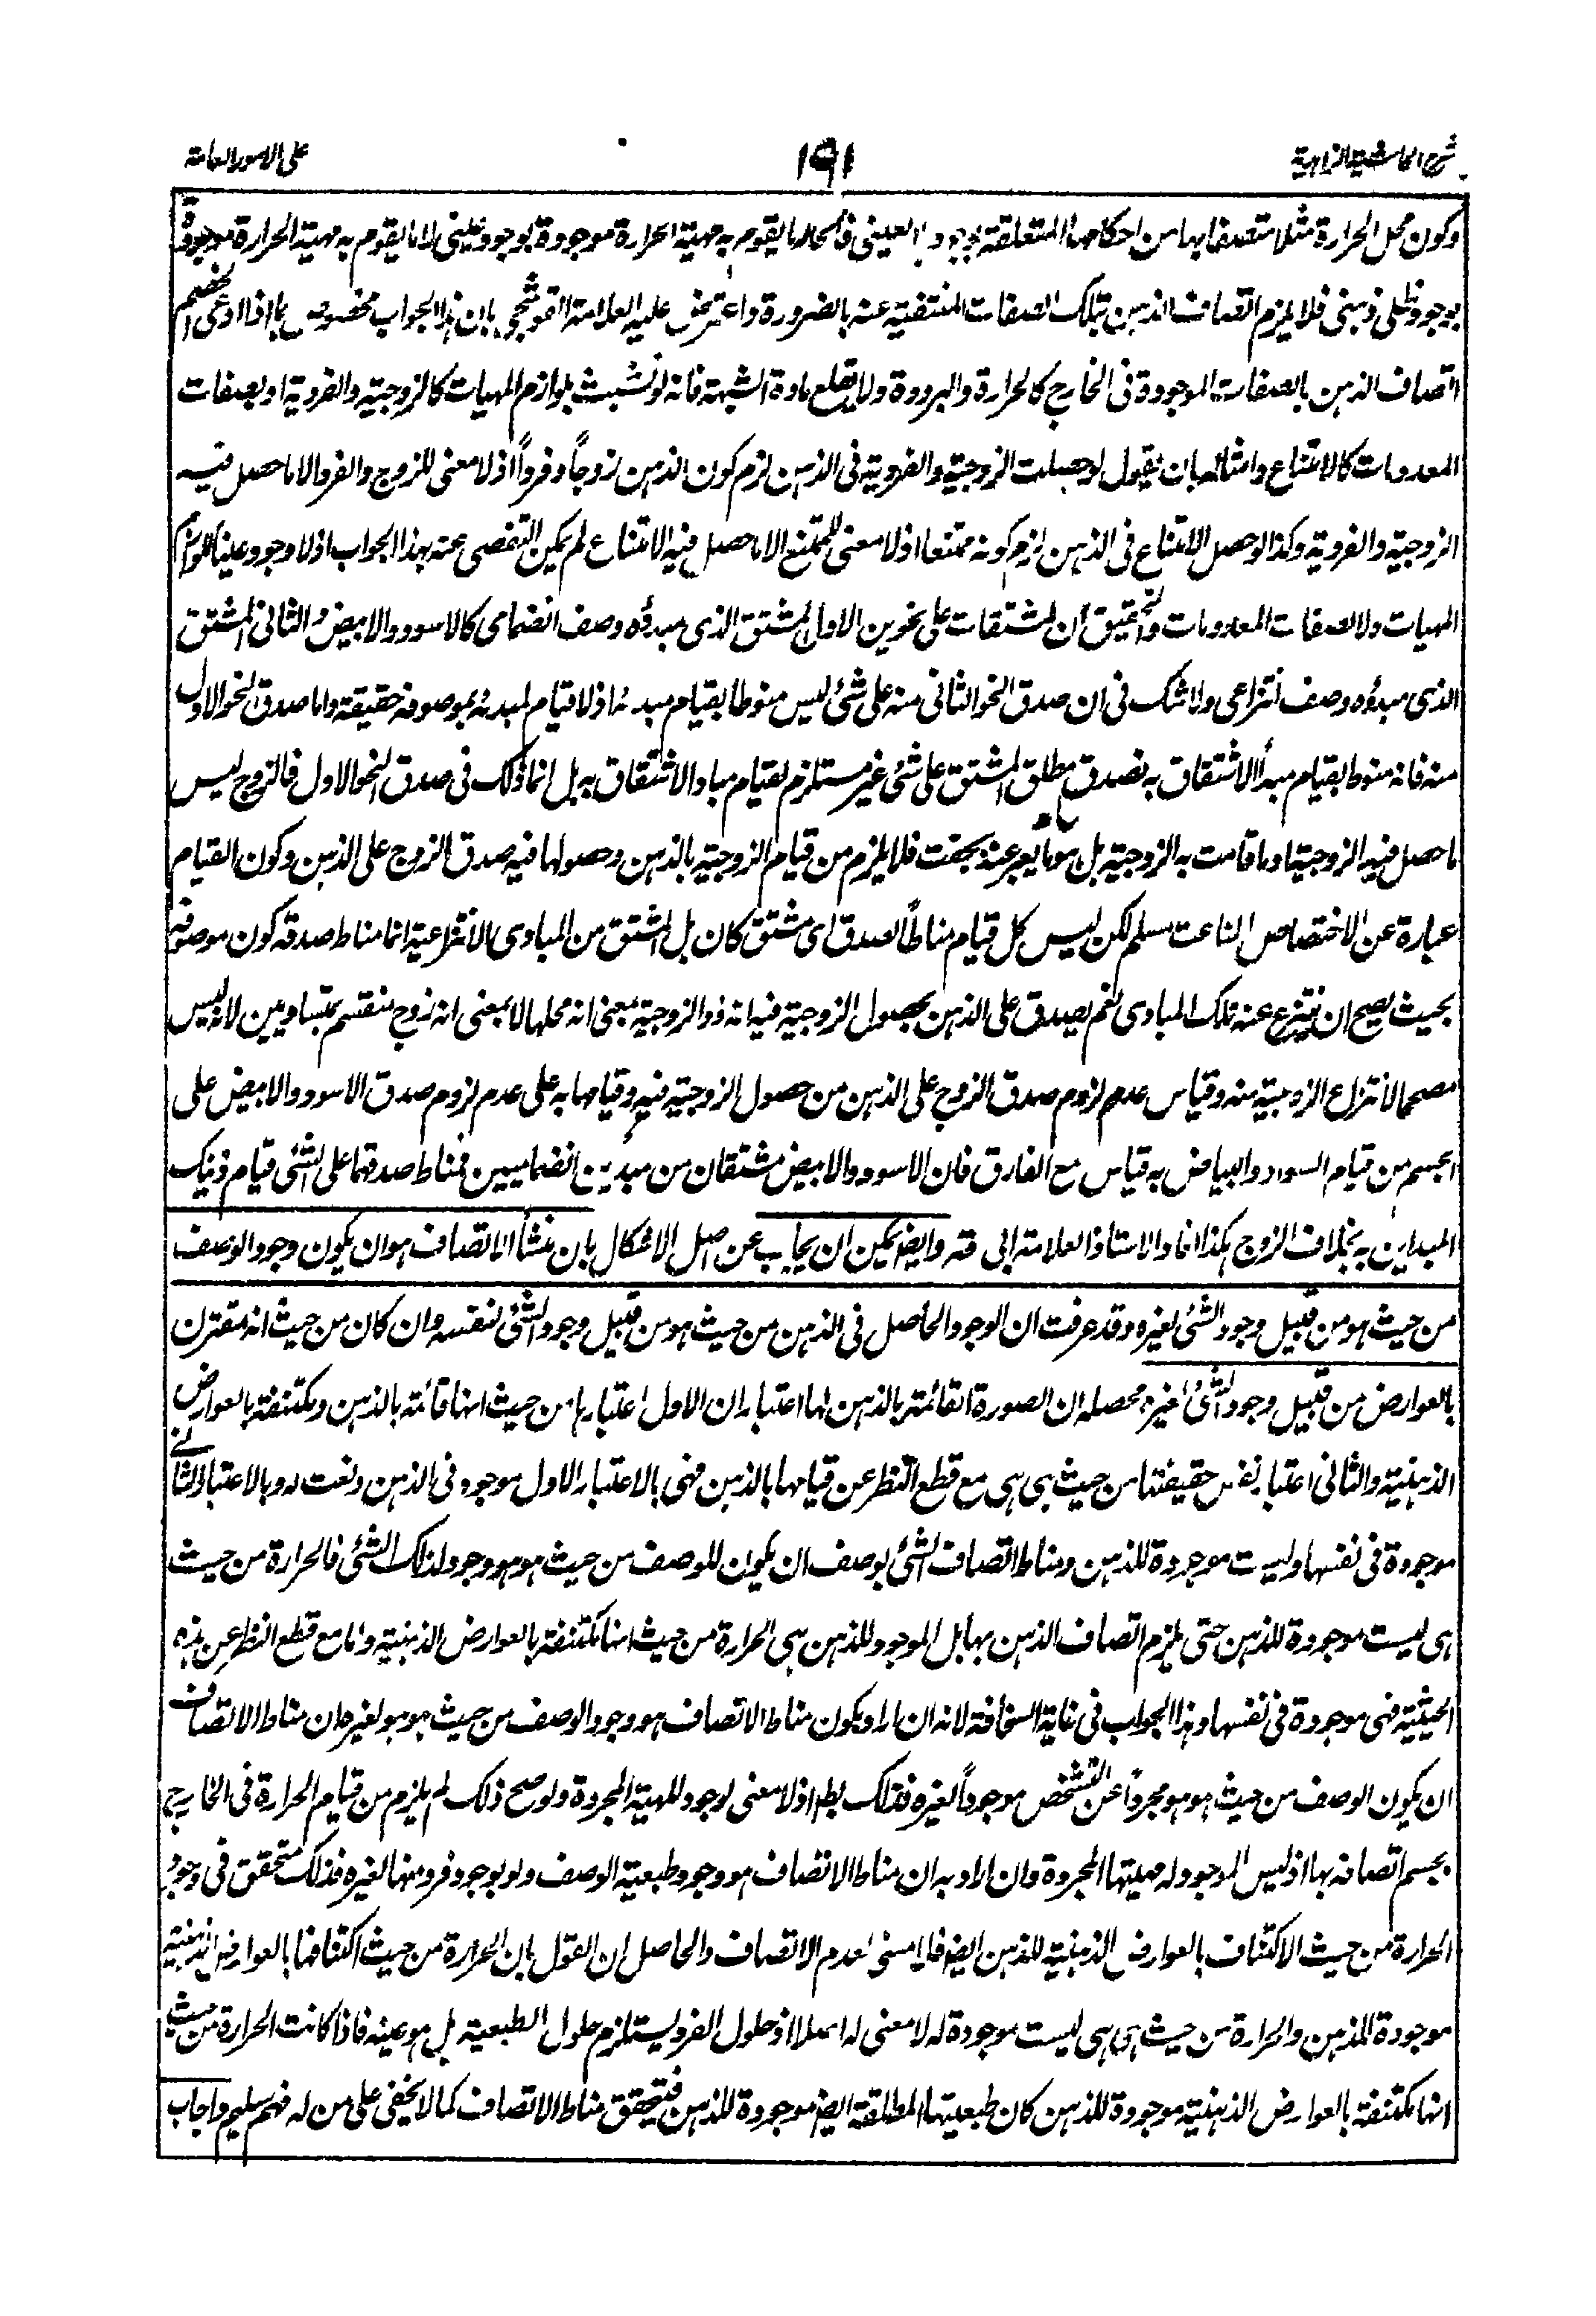 شرح الحاشية الزاهدية
١٩١
على الامور العامة
وكون محل الحرارة مثلا متصفا بها من احكامها المتعلقة بوجودها العيني فالحار ما يقوم به مهية الحرارة موجودة بوجود عيني لا ما يقوم به مهية الحرارة موجودة
بوجود ظلي ذهني فلا يلزم اتصاف الذهن بتلك الصفات المنتفية عنه بالضرورة واعترض عليه العلامة القوشجي بان هذا الجواب مخصوص بما اذا ادعى الخصم
اتصاف الذهن بالصفات الموجودة في الخارج كالحرارة والبرودة ولا يقلع مادة الشبهة فانه لو تشبث بلوازم المهيات كالزوجية والفردية او بصفات
المعدومات كالامتناع وامثاله بان يقول لو حصلت الزوجية والفردية في الذهن لزم كون الذهن زوجاً وفرداً اذ لا معنى للزوج والفرد الا ما حصل فيه
الزوجية والفردية وكذا لو حصل الامتناع في الذهن لزم كونه ممتنعا اذ لا معنى للممتنع الا ما حصل فيه الامتناع لم يمكن التفصي عنه بهذا الجواب اذ لا وجود عينيا للوازم
المهيات ولا لصفات المعدومات والتحقيق ان المشتقات على نحوين الاول المشتق الذي مبدؤه وصف انضمامي كالاسود والابيض والثاني المشتق
الذي مبدؤه وصف انتزاعي ولا شك في ان صدق النحو الثاني منه على شئ ليس منوطا بقيام مبدئه اذ لا قيام لمبدئه بموصوفه حقيقة واما صدق النحو الاول
منه فانه منوط بقيام مبدأ الاشتقاق به فصدق مطلق المشتق على شئ غير مستلزم لقيام مبادء الاشتقاق به بل انما ذلك في صدق النحو الاول فالزوج ليس
ما حصل فيه الزوجية او ما قامت به الزوجية بل هو ما يعبر عنه بجفت فلا يلزم من قيام الزوجية بالذهن وحصولها فيه صدق الزوج على الذهن وكون القيام
عبارة عن الاختصاص الناعت مسلم لكن ليس كل قيام مناطاً لصدق اى مشتق كان بل المشتق من المبادى الانتزاعية انما مناط صدقه كون موصوفه
بحيث يصح ان ينتزع عنه تلك المبادى نعم يصدق على الذهن بحصول الزوجية فيه انه ذو الزوجية بمعنى انه محلها لا بمعنى انه زوج منقسم بمتساويين لانه ليس
مصححا لانتزاع الزوجية منه وقياس عدم لزوم صدق الزوج على الذهن من حصول الزوجية فيه وقيامها به على عدم لزوم صدق الاسود والابيض على
الجسم من قيام السواد والبياض به قياس مع الفارق فان الاسود والابيض مشتقان من مبدئين انضماميين فمناط صدقهما على الشئ قيام ذينك
المبداين به بخلاف الزوج هكذا افاد الاستاذ العلامة ابي قده وايضا يمكن ان يجاب عن اصل الاشكال بان منشأ الاتصاف هو ان يكون وجود الوصف
من حيث هو من قبيل وجود الشئ لغيره وقد عرفت ان الوجود الحاصل في الذهن من حيث هو من قبيل وجود الشئ لنفسه وان كان من حيث انه مقترن
بالعوارض من قبيل وجود الشئ لغيره محصله ان الصورة القائمة بالذهن لها اعتباران الاول اعتبارها من حيث انها قائمة بالذهن ومكتنفة بالعوارض
الذهنية والثاني اعتبار نفس حقيقتها من حيث هي هي مع قطع النظر عن قيامها بالذهن فهي بالاعتبار الاول موجود في الذهن ونعت له وبالاعتبار الثاني
موجودة في نفسها وليست موجودة للذهن ومناط اتصاف الشئ بوصف ان يكون للوصف من حيث هو هو وجود لذلك الشئ فالحرارة من حيث
هي ليست موجودة للذهن حتى يلزم اتصاف الذهن بها بل الموجود للذهن هي الحرارة من حيث انها مكتنفة بالعوارض الذهنية واما مع قطع النظر عن هذه
الحيثية فهي موجودة في نفسها وهذا الجواب في غاية السخافة لانه ان اراد بكون مناط الاتصاف هو وجود الوصف من حيث هو هو لغيره ان مناط الاتصاف
ان يكون الوصف من حيث هو هو مجرداً عن التشخص موجوداً لغيره فذلك بط اذ لا معنى لوجود للمهية المجردة ولو صح ذلك لم يلزم من قيام الحرارة في الخارج
بجسم اتصافه بها اذ ليس الموجود له مهيتها المجردة وان اراد به ان مناط الاتصاف هو وجود طبيعة الوصف ولو بوجود فرد منها لغيره فذلك متحقق في وجود
الحرارة من حيث الاكتناف بالعوارض الذهنية للذهن ايضا فلا معنى لعدم الاتصاف والحاصل ان القول بان الحرارة من حيث اكتنافها بالعوارض الذهنية
موجودة للذهن والحرارة من حيث هي هي ليست موجودة له لا معنى له اصلا اذ حلول الفرد يستلزم حلول الطبيعة بل هو عينه فاذا كانت الحرارة من حيث
انها مكتنفة بالعوارض الذهنية موجودة للذهن كان طبيعتها المطلقة ايضا موجودة للذهن فيتحقق مناط الاتصاف كما لا يخفى على من له فهم سليم واجاب